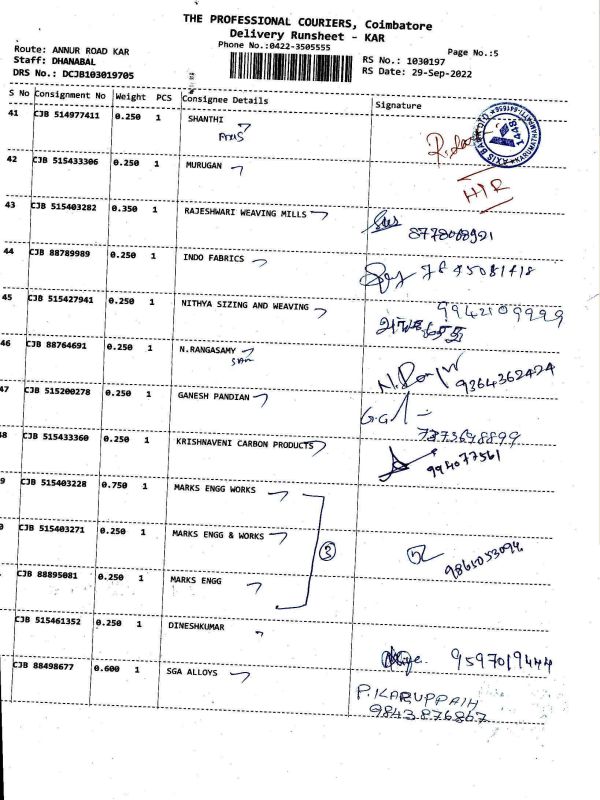 THE PROFESSIONAL COURIERS, Coimbatore
Delivery Runsheet - KAR
Phone No.:0422-3505555
Page No.:5
Route: ANNUR ROAD KAR
Staff: DHANABAL
DRS No.: DCJB103019705
RS No.: 1030197
RS Date: 29-Sep-2022
S No Consignment No Weight PCS Consignee Details Signature
41 CJB 514977411 0.250 1 SHANTHI
Axis
42 CJB 515433306 0.250 1 MURUGAN
HIR
43 CJB 515403282 0.350 1 RAJESHWARI WEAVING MILLS
44 CJB 88789989 0.250 1 INDO FABRICS
45 CJB 515427941 0.250 1 NITHYA SIZING AND WEAVING
9942109999
46 CJB 88764691 0.250 1 N.RANGASAMY
9364362424
47 CJB 515200278 0.250 1 GANESH PANDIAN
48 CJB 515433360 0.250 1 KRISHNAVENI CARBON PRODUCTS
994077561
9 CJB 515403228 0.750 1 MARKS ENGG WORKS
0 CJB 515403271 0.250 1 MARKS ENGG & WORKS
3
9865053094
CJB 88895081 0.250 1 MARKS ENGG
CJB 515461352 0.250 1 DINESHKUMAR
9597019444
CJB 88498677 0.600 1 SGA ALLOYS
P.KARUPPAIH
9843876867